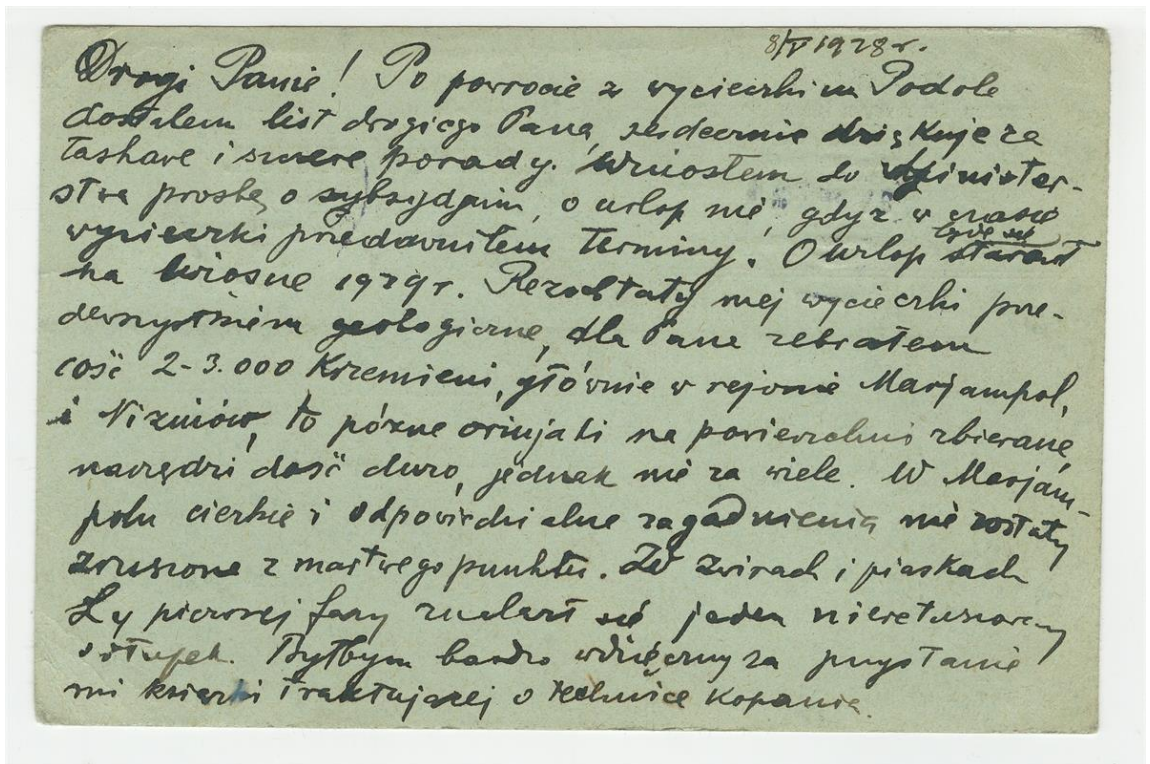 8/V 1928 r.
Drogi Panie! Po powrocie z wycieczki na Podole
dostałem list drogiego Pana, serdecznie dziękuję za
łaskawe i szczere porady. Wniosłem do Minister-
stwa prośbę o subsydjum, o urlop nie, gdyż w czasie
wycieczki przedawniłem terminy. O urlop będę się starał
na wiosnę 1929 r. Rezultaty mej wycieczki prze-
dewszystkiem geologiczne, dla Pana zebrałem
coś 2-3.000 Krzemieni, głównie w rejonie Marjampol,
i Niżniów, to późne oriniaki na powierzchni zbierane,
narzędzi dość dużo, jednak nie za wiele. W Marjam-
polu cierkie i odpowiedzialne zagadnienia nie zostały
zruszone z martwego punktu. We żwirach i piaskach
Ly pierwszej fazy znalazł się jeden nieretuszowany
odłupek. Byłbym bardzo wdzięczny za przysłanie
mi książki traktującej o technice kopania.